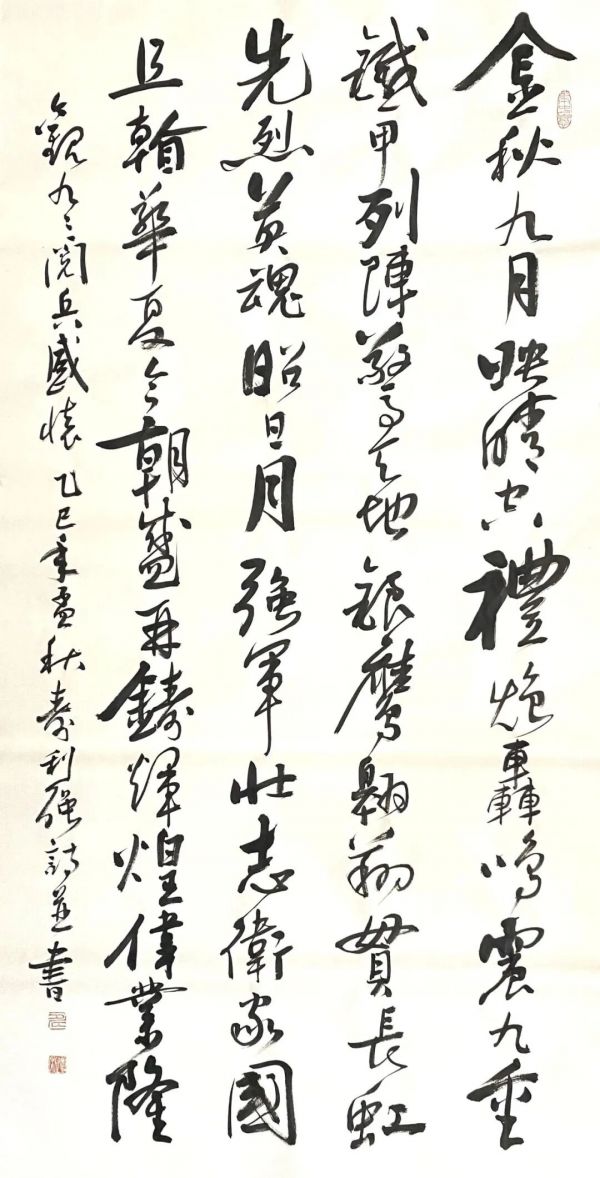 金秋九月映晴空禮炮轟鳴震九重
鐵甲列陣驚天地銀鷹翱翔貫長虹
先烈英魂昭日月强軍壯志衛家國
且華夏今朝盛再鑄輝煌偉業隆
觀九三閱兵感懷 乙巳年孟秋壽利强詩並書